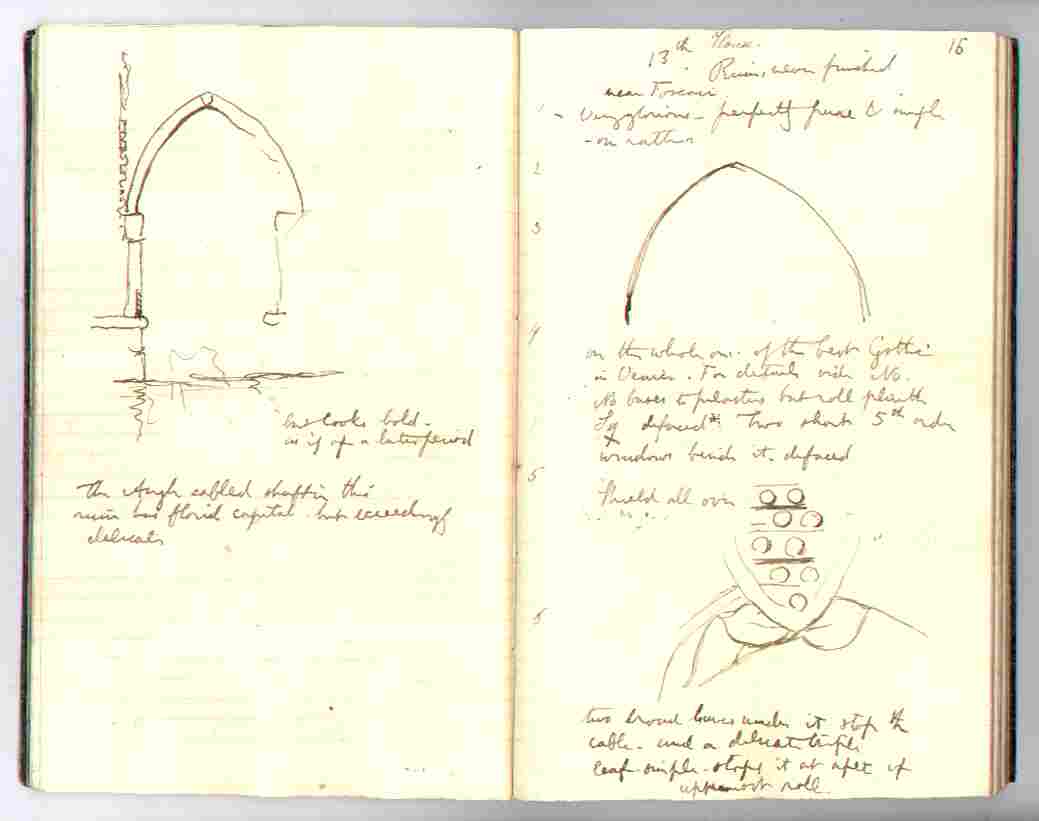 but looks bold.
as if of a later period
The Angle cabled shaft in this
ruin has florid capital but exceedingly
delicate
15
13th House.
Ruins never finished
near Foscari
1 - Very glorious - perfectly pure & simple
- on
2
3
4
on the whole one of the best Gothic
in Venice. For details vide No.
No bases to pilasters but roll plinth
defaced Two short 5th order
windows beside it. defaced
5
Shield all over
5
two broad leaves under it stop the
cable. and a delicate triple
leaf simple - stops it at apex of
uppermost roll.